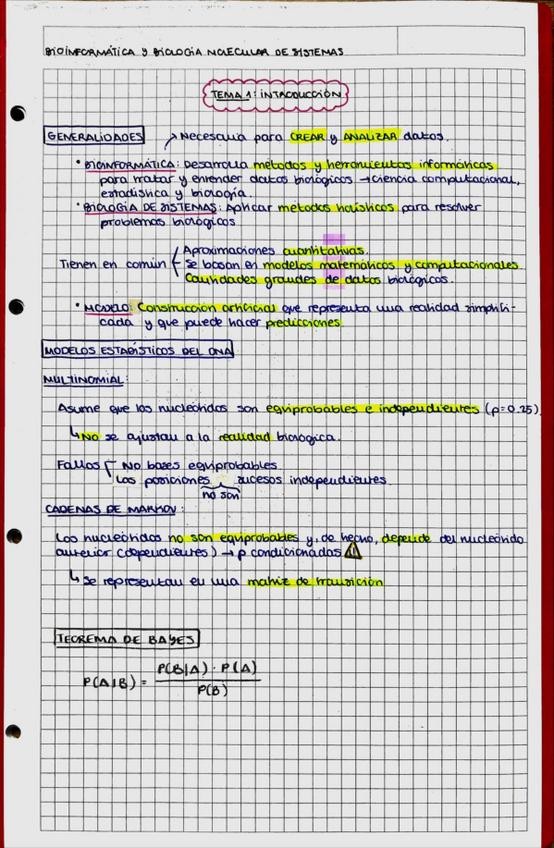 BIOINFORMÁTICA Y BIOLOGÍA MOLECULAR DE SISTEMAS
TEMA 1: INTRODUCCIÓN
GENERALIDADES → Necesaria para CREAR y ANALIZAR datos.
• BIOINFORMÁTICA: Desarrolla métodos y herramientas informáticas
para tratar y entender datos biológicos → ciencia computacional,
estadística y biología.
• BIOLOGÍA DE SISTEMAS: Aplicar métodos holísticos para resolver
problemas biológicos
Aproximaciones cuantitativas.
Tienen en común { Se basan en modelos matemáticos y computacionales
Cantidades grandes de datos biológicos.
• MODELO: Construcción artificial que representa una realidad simplifi-
cada y que puede hacer predicciones
MODELOS ESTADÍSTICOS DEL DNA
MULTINOMIAL:
Asume que los nucleótidos son equiprobables e independientes (p=0.25)
↳ No se ajustan a la realidad biológica.
Fallos { No bases equiprobables
Las posiciones sucesos independientes
no son
CADENAS DE MARKOV:
Los nucleótidos no son equiprobables y, de hecho, depende del nucleótido
anterior (dependientes) → p condicionadas ⚠
↳ Se representan en una matriz de transición
TEOREMA DE BAYES
P(A|B) = P(B|A) · P(A)
P(B)